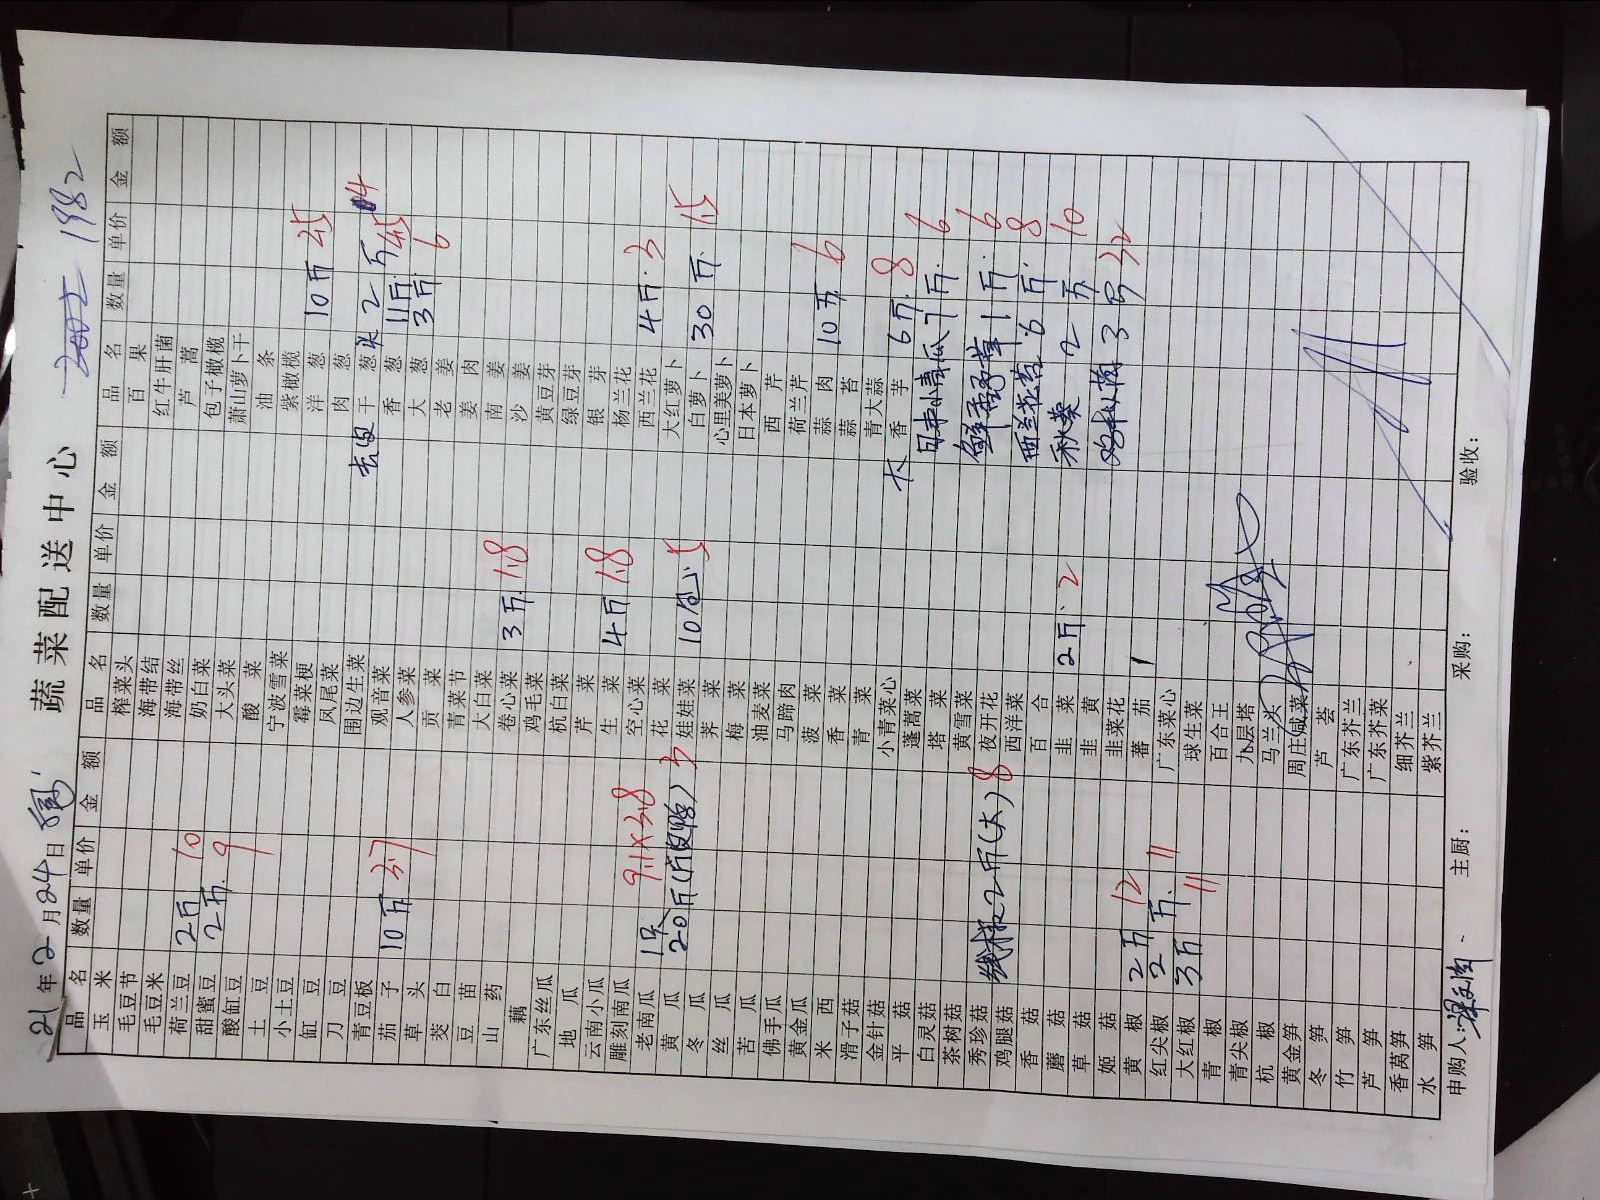 蔬菜配送中心
2002 1982
21年2月24日
品名 数量 单价 金额 品名 数量 单价 金额 品名 数量 单价 金额
玉米
毛豆节
毛豆米
荷兰豆 2斤 10
甜蜜豆 2斤 9
酸缸豆
土豆
小土豆
缸豆
刀豆
青豆板
茄子 10斤 3.7
草头
茭白
豆苗
山药
藕
广东丝瓜
地瓜
云南小瓜
雕刻南瓜
老南瓜 1只 9.1×3.8
黄瓜 20斤 3
冬瓜
丝瓜
苦瓜
佛手瓜
黄金瓜
西米
滑子菇
金针菇
平菇
白灵菇
茶树菇
秀珍菇
鸡腿菇 线椒2斤(大) 8
香菇
蘑菇
草菇
姬菇
黄椒 2斤 12
红尖椒 2斤 11
大红椒 3斤 11
青椒
青尖椒
杭椒
黄金笋
冬笋
竹笋
芦笋
香莴笋
水笋
榨菜头
海带结
海带丝
奶白菜
大头菜
酸菜
宁波雪菜
霉菜梗
凤尾菜
围边生菜
观音菜
人参菜
贡菜
青菜节
大白菜
卷心菜 3斤 1.8
鸡毛菜
杭白菜
芹菜
生菜 4斤 1.8
空心菜
花菜
娃娃菜 10包 5
荠菜
梅菜
油麦菜
马蹄肉
菠菜
香菜
青菜
小青菜心
蓬蒿菜
塔菜
黄雪菜
夜开花
西洋菜
百合
韭菜 2斤 2
韭黄
韭菜花
蕃茄
广东菜心
球生菜
百合王
九层塔
马兰头
周庄咸菜
芦荟
广东芥兰
广东芥菜
细芥兰
紫芥兰
百果
红牛肝菌
芦蒿
包子橄榄
萧山萝卜干
油条
紫橄榄
洋葱 10斤 2.5
肉葱
干葱头 2斤 4
香葱 11斤 4.5
大葱 3斤 6
老姜
姜肉
南姜
沙姜
黄豆芽
绿豆芽
银芽
杨兰花
西兰花 4斤 3
大红萝卜
白萝卜 30斤 1.5
心里美萝卜
日本萝卜
西芹
荷兰芹
蒜肉 10斤 6
蒜苔
青大蒜
大香芋 6斤 8
日本小青瓜 7斤 6
1斤 6
西兰花苔 6斤 8
秋葵 2斤 10
32
申购人: 主厨: 采购: 验收: